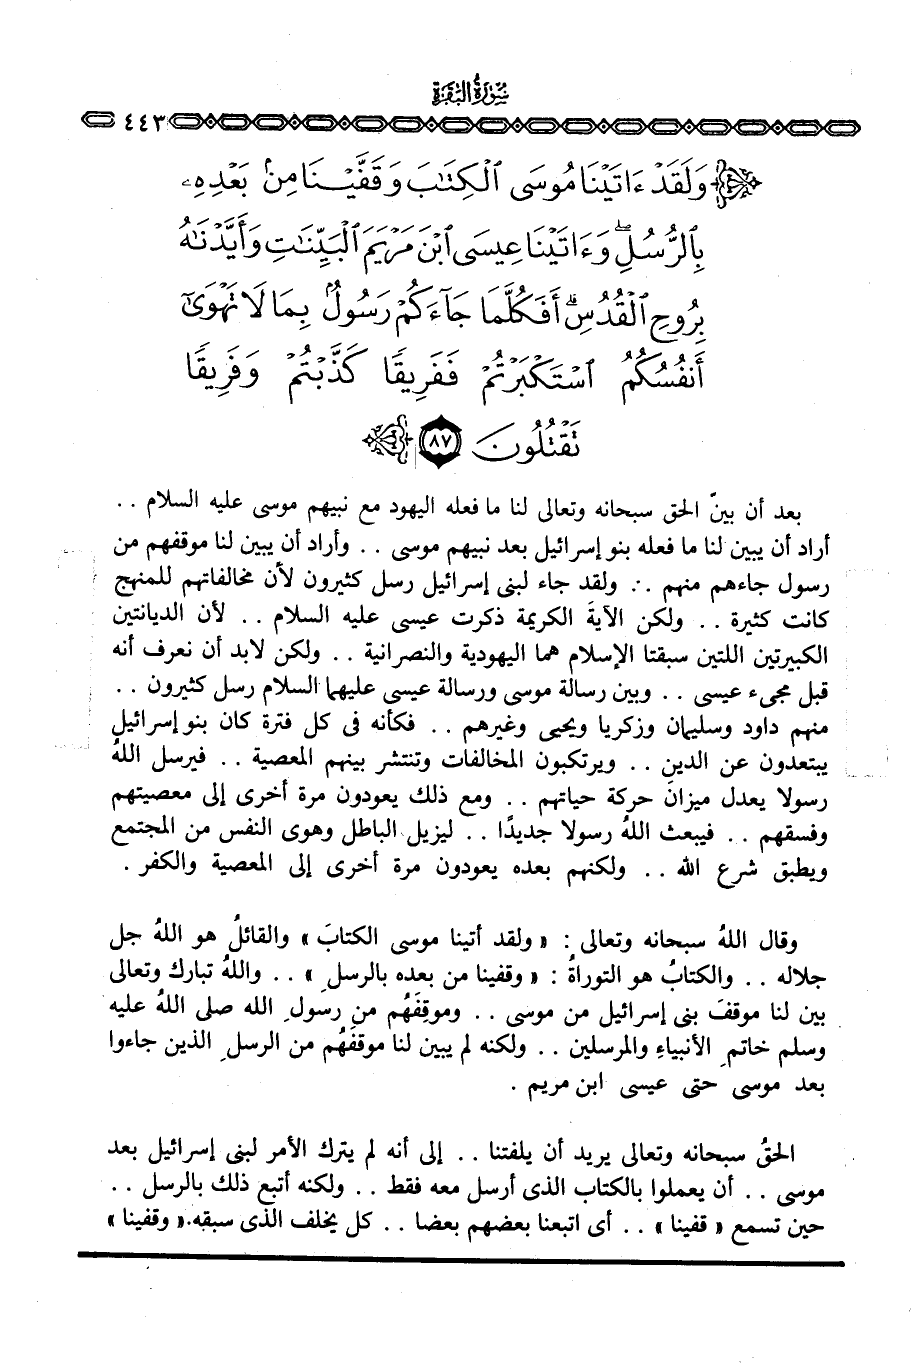 سُورَةُ البَقَرَة
٤٤٣
وَلَقَدْ ءَاتَيْنَا مُوسَى ٱلْكِتَٰبَ وَقَفَّيْنَا مِنۢ بَعْدِهِۦ
بِٱلرُّسُلِ ۖ وَءَاتَيْنَا عِيسَى ٱبْنَ مَرْيَمَ ٱلْبَيِّنَٰتِ وَأَيَّدْنَٰهُ
بِرُوحِ ٱلْقُدُسِ ۗ أَفَكُلَّمَا جَآءَكُمْ رَسُولٌۢ بِمَا لَا تَهْوَىٰٓ
أَنفُسُكُمُ ٱسْتَكْبَرْتُمْ فَفَرِيقًا كَذَّبْتُمْ وَفَرِيقًا
تَقْتُلُونَ ٨٧
بعد أن بينّ الحق سبحانه وتعالى لنا ما فعله اليهود مع نبيهم موسى عليه السلام . .
أراد أن يبين لنا ما فعله بنو إسرائيل بعد نبيهم موسى . . وأراد أن يبين لنا موقفهم من
رسول جاءهم منهم . . ولقد جاء لبنى إسرائيل رسل كثيرون لأن مخالفاتهم للمنهج
كانت كثيرة . . ولكن الآيةَ الكريمة ذكرت عيسى عليه السلام . . لأن الديانتين
الكبيرتين اللتين سبقتا الإسلام هما اليهودية والنصرانية . . ولكن لابد أن نعرف أنه
قبل مجىء عيسى . . وبين رسالة موسى ورسالة عيسى عليهما السلام رسل كثيرون . .
منهم داود وسليمان وزكريا ويحيى وغيرهم . . فكأنه فى كل فترة كان بنو إسرائيل
يبتعدون عن الدين . . ويرتكبون المخالفات وتنتشر بينهم المعصية . . فيرسل اللهُ
رسولا يعدل ميزانَ حركة حياتهم . . ومع ذلك يعودون مرة أخرى إلى معصيتهم
وفسقهم . . فيبعث اللهُ رسولا جديدًا . . ليزيل الباطل وهوى النفس من المجتمع
ويطبق شرع الله . . ولكنهم بعده يعودون مرة أخرى إلى المعصية والكفر .
وقال اللهُ سبحانه وتعالى : « ولقد أتينا موسى الكتابَ » والقائلُ هو اللهُ جل
جلاله . . والكتابُ هو التوراةُ : « وقفينا من بعده بالرسلِ » . . واللهُ تبارك وتعالى
بين لنا موقفَ بنى إسرائيل من موسى . . وموقفَهُم من رسولِ الله صلى اللهُ عليه
وسلم خاتمِ الأنبياءِ والمرسلين . . ولكنه لم يبين لنا موقفَهُم من الرسلِ الذين جاءوا
بعد موسى حتى عيسى ابن مريم .
الحقُ سبحانه وتعالى يريد أن يلفتنا . . إلى أنه لم يترك الأمر لبنى إسرائيل بعد
موسى . . أن يعملوا بالكتاب الذى أرسل معه فقط . . ولكنه أتبع ذلك بالرسل . .
حين تسمع « قفينا » . . أى اتبعنا بعضهم بعضا . . كل يخلف الذى سبقه. « وقفينا »